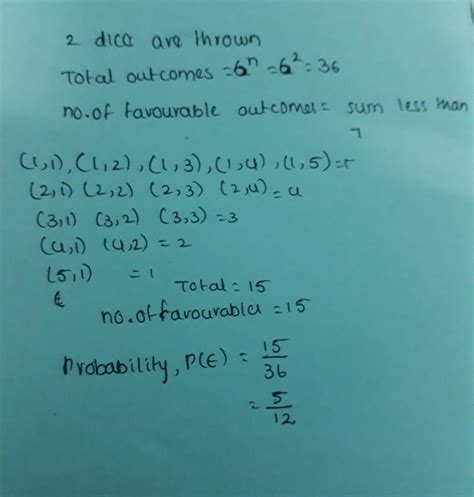 2 dice are thrown
Total outcomes = 6ⁿ = 6² = 36
no. of favourable outcomes = sum less than
7
(1,1), (1,2), (1,3), (1,4), (1,5) = 5
(2,1) (2,2) (2,3) (2,4) = 4
(3,1) (3,2) (3,3) = 3
(4,1) (4,2) = 2
(5,1) = 1
Total = 15
no. of favourable = 15
Probability, P(E) = 15/36
= 5/12